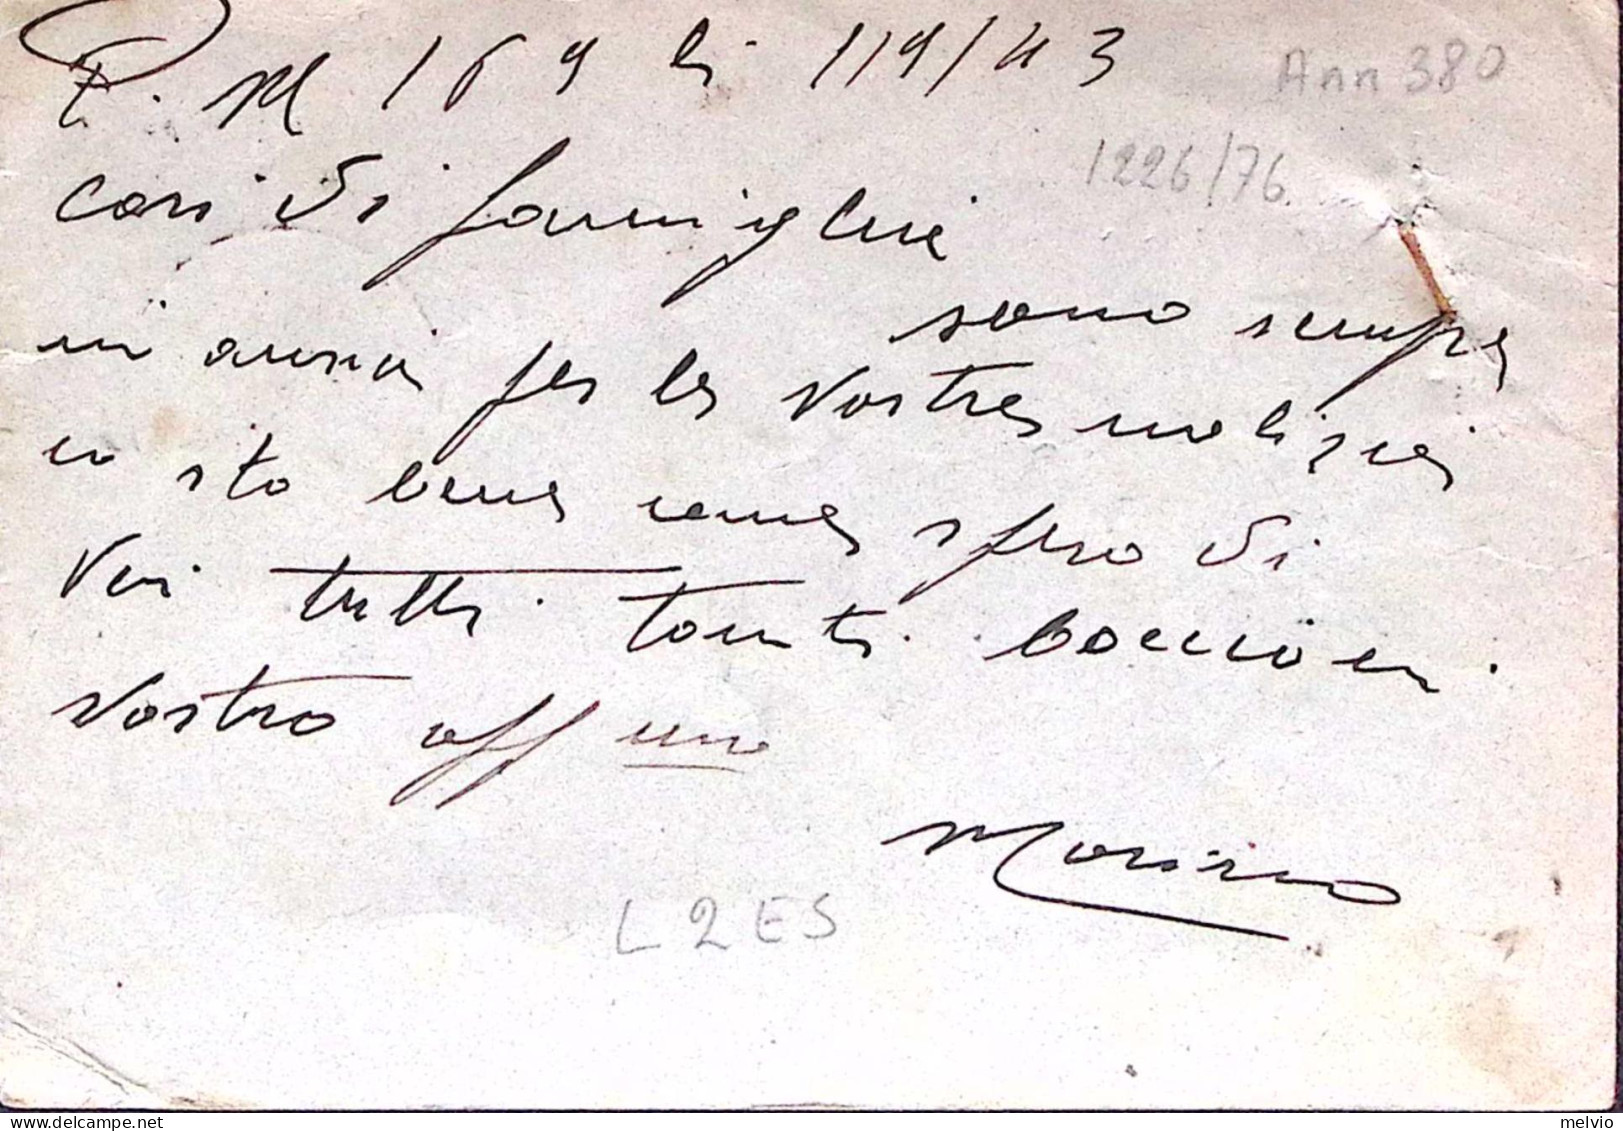 P. M 169 li 1/9/43
Ann 380
1226/76
cari di famiglia
sono sempre
in ansia per le vostre notizie
io sto bene come spero di
Voi tutti. tanti bacioni.
Vostro aff uno
L 2 ES
melvio